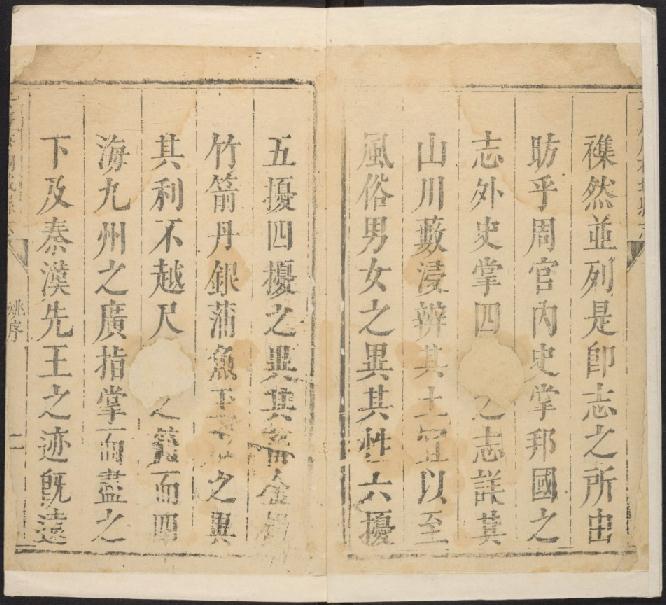 襍然並列是卽志之所由
昉乎周官內史掌邦國之
志外史掌四之志詳其
山川藪浸辨其土宜以至
風俗男女之異其性六擾
五擾四擾之異其畜金錫
竹箭丹銀蒲魚玉石之異
其利不越尺之籍而四
海九州之廣指掌而盡之
下及秦漢先王之迹旣遠
姚序
二